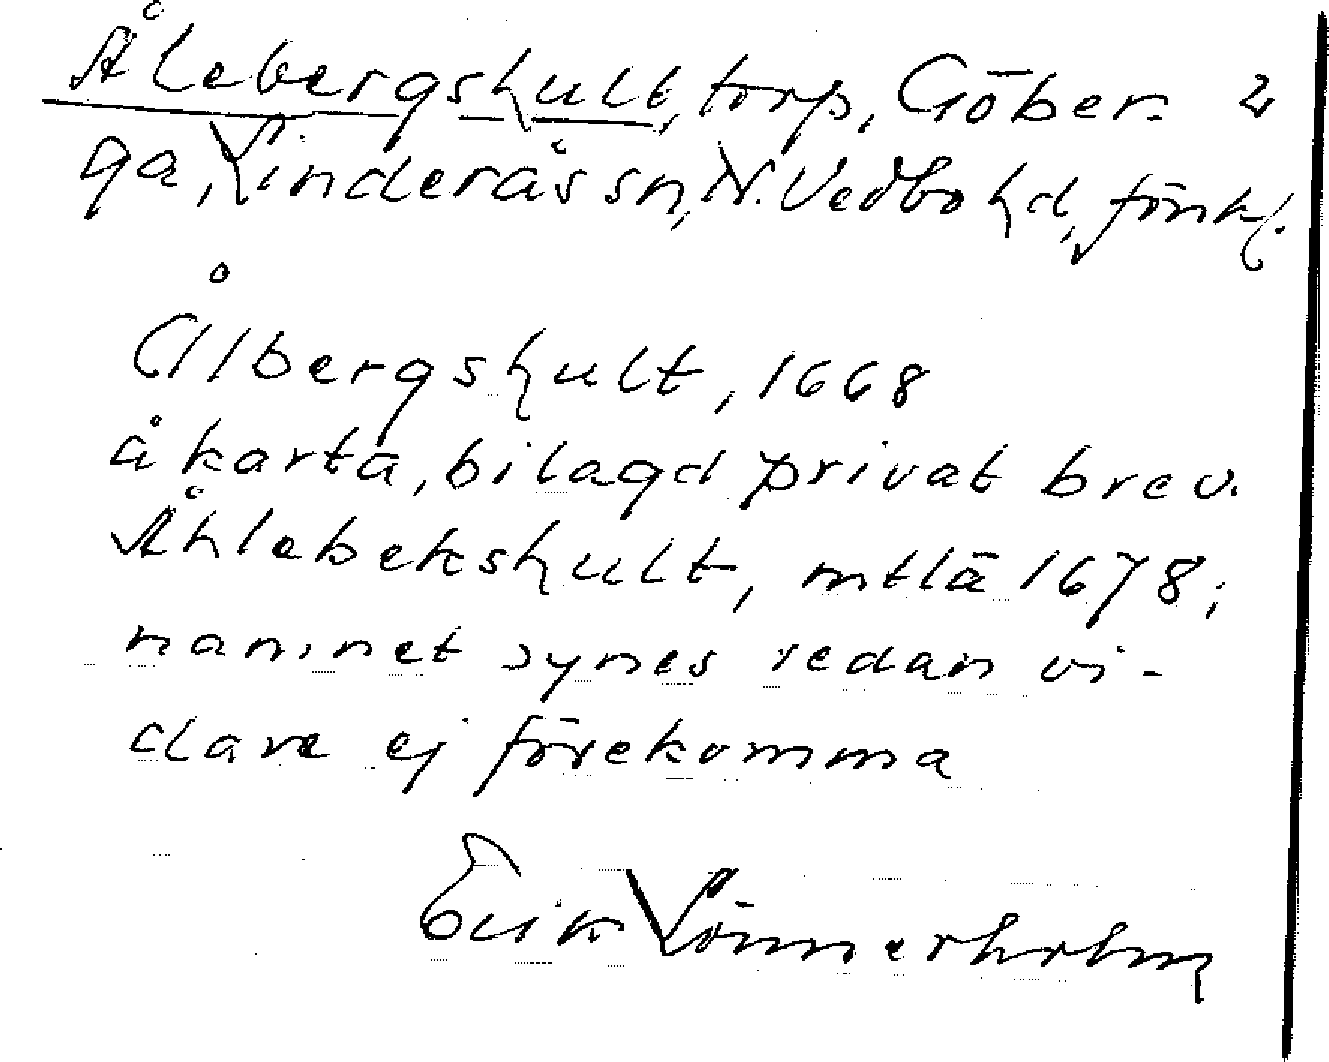 Ålebergshult, torp, Göber- 2
ga, Linderås sn, N. Vedbo hd, Jönk.
Ålbergshult, 1668
å karta, bilagd privat brev.
Åhlebekshult, mtlä 1678;
namnet synes sedan vi-
dare ej förekomma
Erik Lönnerholm